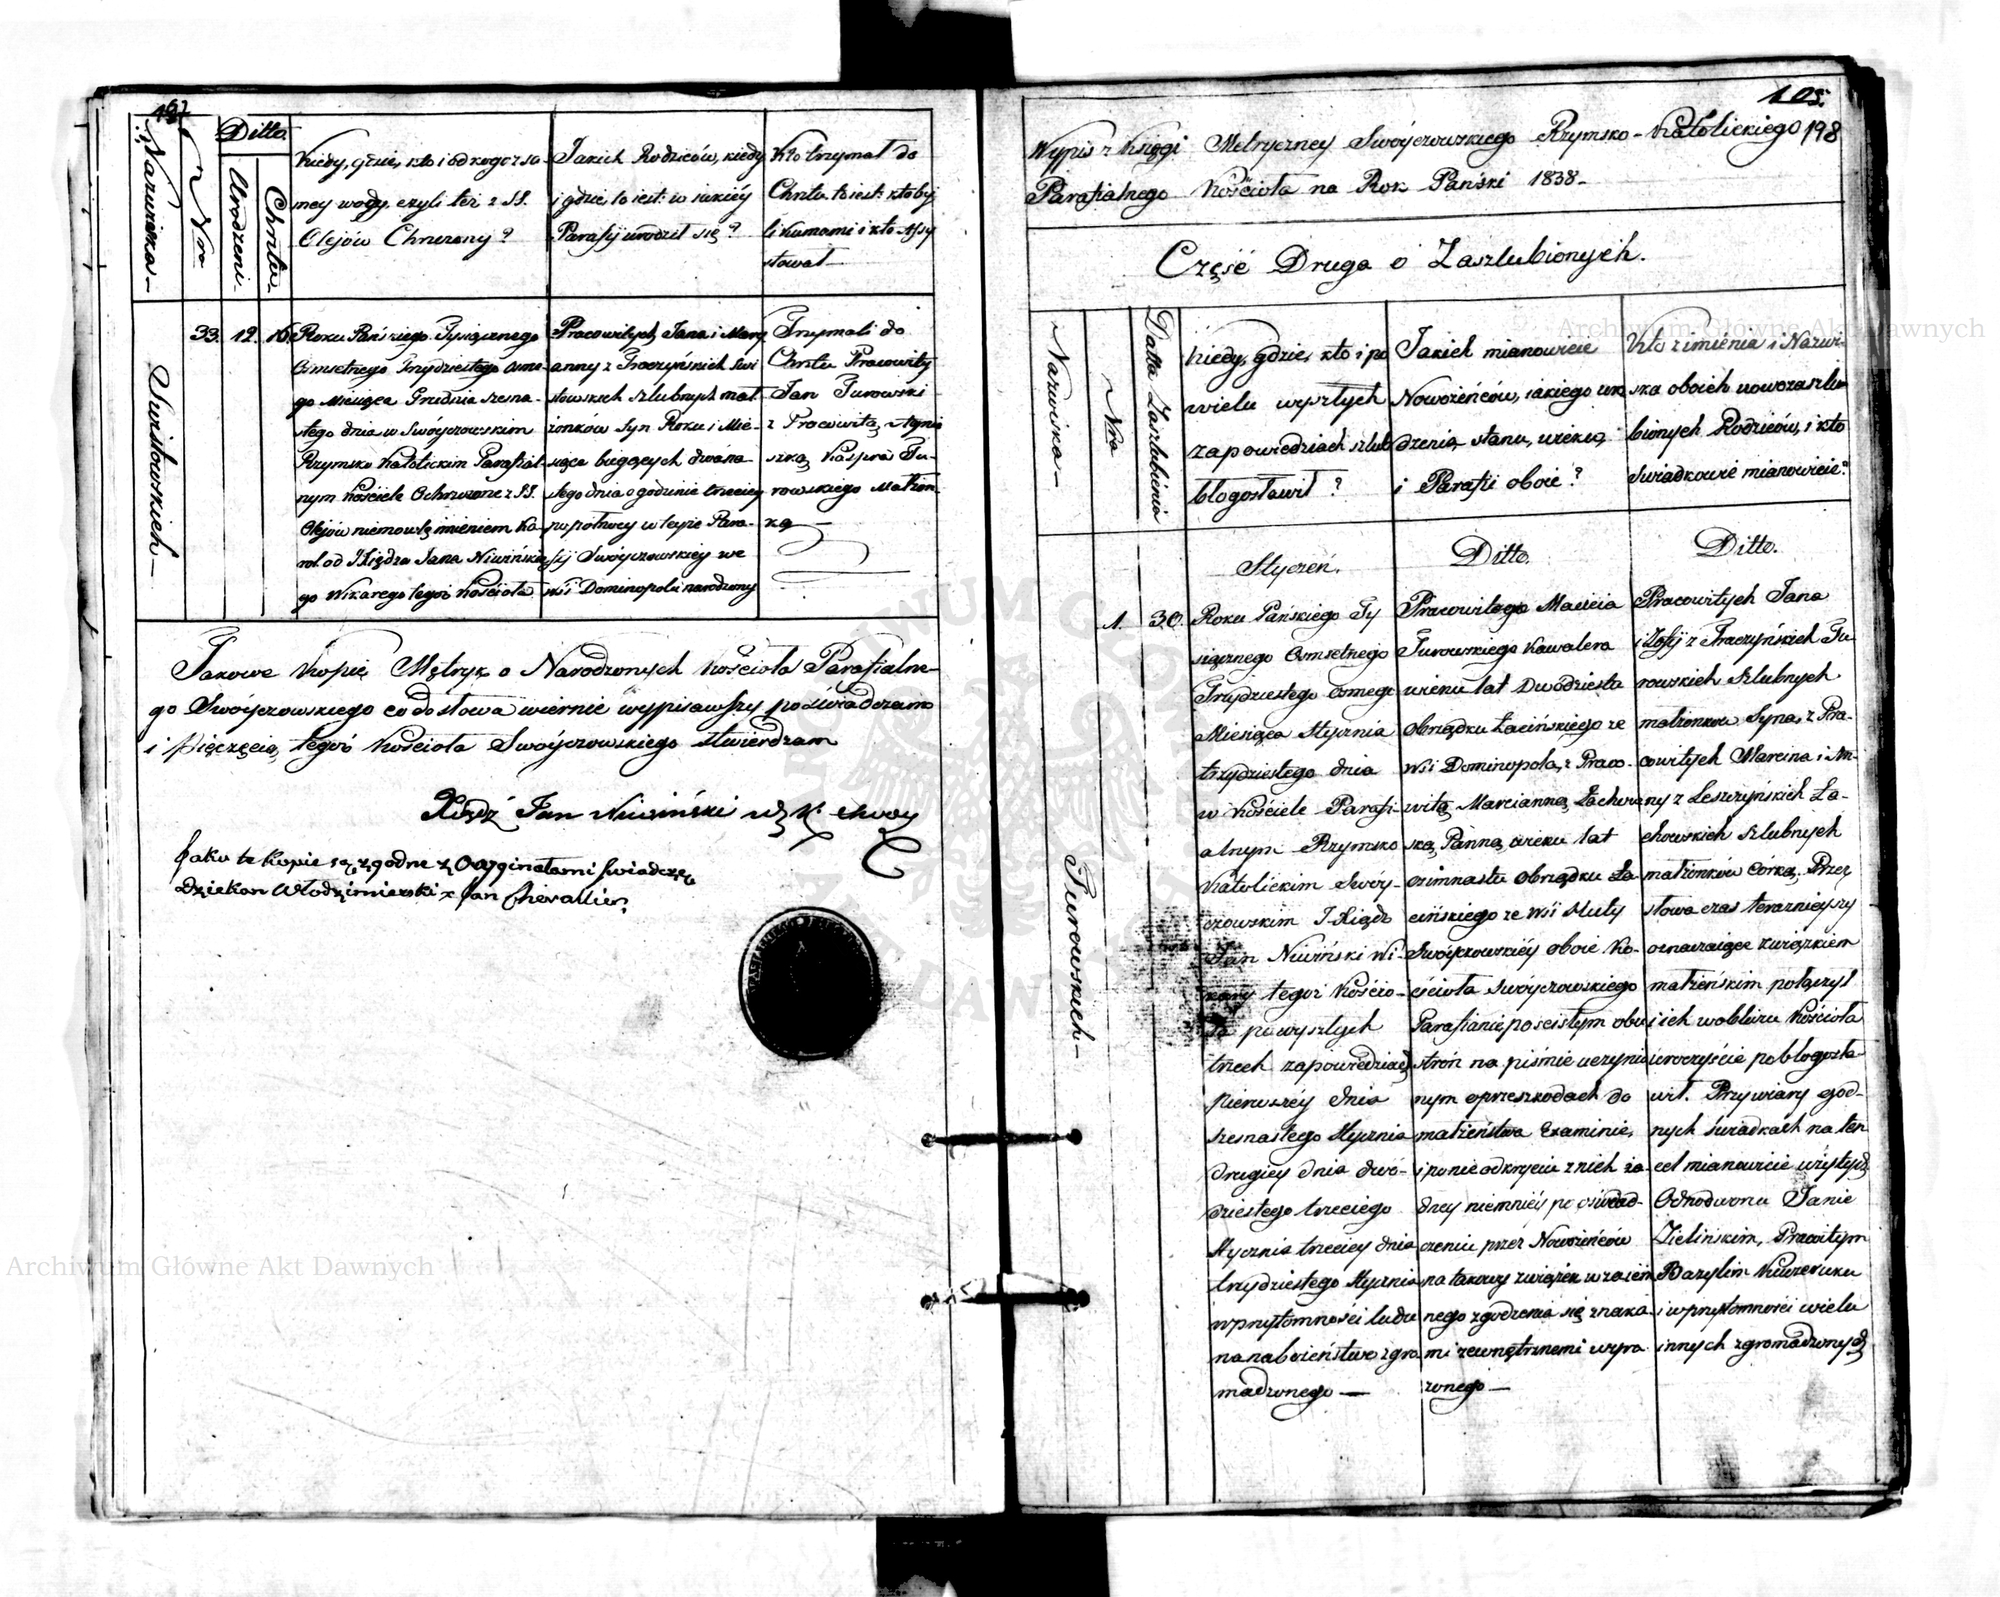 Nazwiska
Nro
Ditto
Urodzeni
Chrztu
Kiedy, gdzie, kto i od kogo z sa
mey wody, czyli też z SS.
Olejów Chrzczony?
Jakich Rodziców, kiedy
i gdzie to iest: w iakiéy
Parafij urodził się?
Kto trzymał do
Chrztu to iest: kto by
li kumami i kto Assy
stował
Suristowskich
33. 12. 16.
Roku Pańskiego Tysiącznego
Osmsetnego Trzydziestego Osme
go Miesiąca Grudnia szesna-
stego dnia w Swóyczowskim
Rzymsko Katolickim Parafial-
nym Kościele Ochrzczone z SS.
Olejów niemowlę imieniem Ka-
rol od JXiędza Jana Niwińskie
go Wikarego tegoż Kościoła
Pracowitych Jana i Mary
anny z Traczyńskich Suri
stowskich szlubnych mał
żonków Syn Roku i Mie-
siąca bieżących dwóna-
stego dnia o godzinie trzeciey
po północy w teyże Para-
fij Swóyczowskiey we
wsi Dominopolu narodzony
Trzymali do
Chrztu Pracowity
Jan Turowski
z Pracowitą Agnie
szką Kaspra Tu-
rowskiego Małżon-
ką
Jakowe Kopię Mętryk o Narodzonych Kościoła Parafialne-
go Swóyczowskiego co do słowa wiernie wypisawszy poświadczam
i pięczęcią tegoż Kościoła Swóyczowskiego stwierdzam
Xiądz Jan Niwiński
Jako te Kopie są zgodne z Orygginałami świadczę
Dziekan Włodzimierski x Jan Chevallier
105.
198
Wypis z Księgi Metryczney Swóyczowskiego Rzymsko-Katolickiego
Parafialnego Kościoła na Rok Pański 1838-
Część Druga o Zaszlubionych.
Nazwiska
Nro
Datta Zaszlubienia
Kiedy, gdzie, kto i po
wielu wyszłych
zapowiedziach szlub
błogosławił?
Jakich mianowicie
Nowożeńców, iakiego uro
dzenia, stanu, wieku,
i Parafii oboie?
Kto z imienia i Nazwi-
ska oboich nowozaszlu
bionych Rodziców, i kto
Swiadkowie mianowicie?
Turowskich
Styczeń.
Ditto.
Ditto.
1. 30.
Roku Pańskiego Ty
siącznego Osmsetnego
Trzydziestego Osmego
Miesiąca Stycznia
trzydziestego dnia
w Kościele Parafi-
alnym Rzymsko
Katolickim Swóy-
czowskim JXiądz
Jan Niwiński Wi-
kary tegoż Kościo-
ła po wyszłych
trzech zapowiedziach
pierwszéy dnia
szesnastego Stycznia
drugiey dnia dwó-
dziestego trzeciego
Stycznia trzeciey dnia
trzydziestego Stycznia
w przytomności ludu
na nabożeństwo zgro
madzonego —
Pracowitego Macieia
Turowskiego Kawalera
wieku lat Dwódziestu
Obrządku Łacińskiego ze
Wsi Dominopola, z Praco-
witą Marcianną Łachow
ską Panną wieku lat
ośimnastu Obrządku Ła-
cińskiego ze Wsi Huty
Swóyczowskiéy oboie Ko-
ścioła Swóyczowskiego
Parafianie po scisłym obu
stron na piśmie uczynio
nym o przeszkodach do
małżeństwa Examinie,
i po nie odkryciu z nich ża
dney niemniéy po oświad-
czeniu przez Nowożeńców
na takowy związek wzaiem
nego zgodzenia się znaka
mi zewnętrznemi wyra
żonego —
Pracowitych Jana
i Zofij z Traczyńskich Tu-
rowskich Szlubnych
małżonków Syna, z Pra-
cowitych Marcina i An-
ny z Leszczyńskich Ła-
chowskich szlubnych
małżonków Córką. Przez
słowa czas teraznieyszy
oznaczaiące związkiem
małżeńskim połączył
i ich w obliczu Kościoła
uroczyście pobłogosła-
wił. Przy wiary god-
nych świadkach na ten
cel mianowicie użytych
Odnodworcu Janie
Zielińskim, Pracowitym
Bazylim
i w przytomności wielu
innych zgromadzonych
Archiwum Główne Akt Dawnych
Archiwum Główne Akt Dawnych
ARCHIWUM GŁÓWNE AKT DAWNYCH